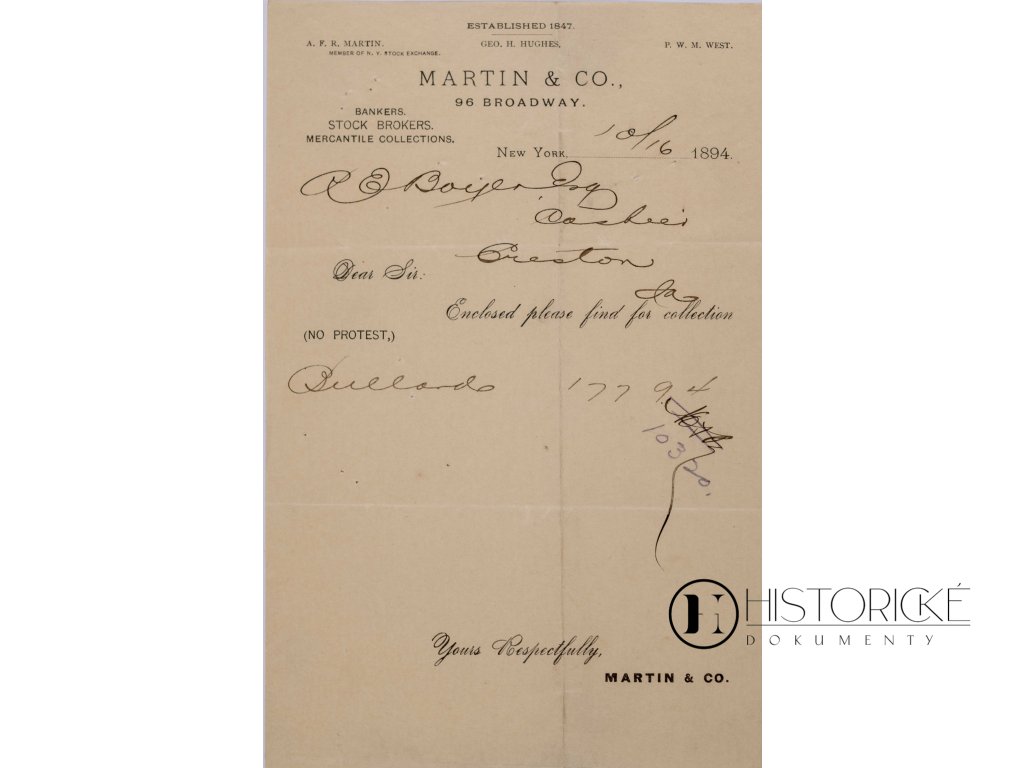 ESTABLISHED 1847.
A. F. R. MARTIN. GEO. H. HUGHES, P. W. M. WEST.
MEMBER OF N. Y. STOCK EXCHANGE.
MARTIN & CO.,
96 BROADWAY.
BANKERS.
STOCK BROKERS.
MERCANTILE COLLECTIONS.
New York, 10/16 1894.
R E Boyer Esq
Cashier
Creston
Dear Sir:
Ia
Enclosed please find for collection
(NO PROTEST,)
Bullard 177 94
10320.
HISTORICKÉ
DOKUMENTY
Yours Respectfully,
MARTIN & CO.